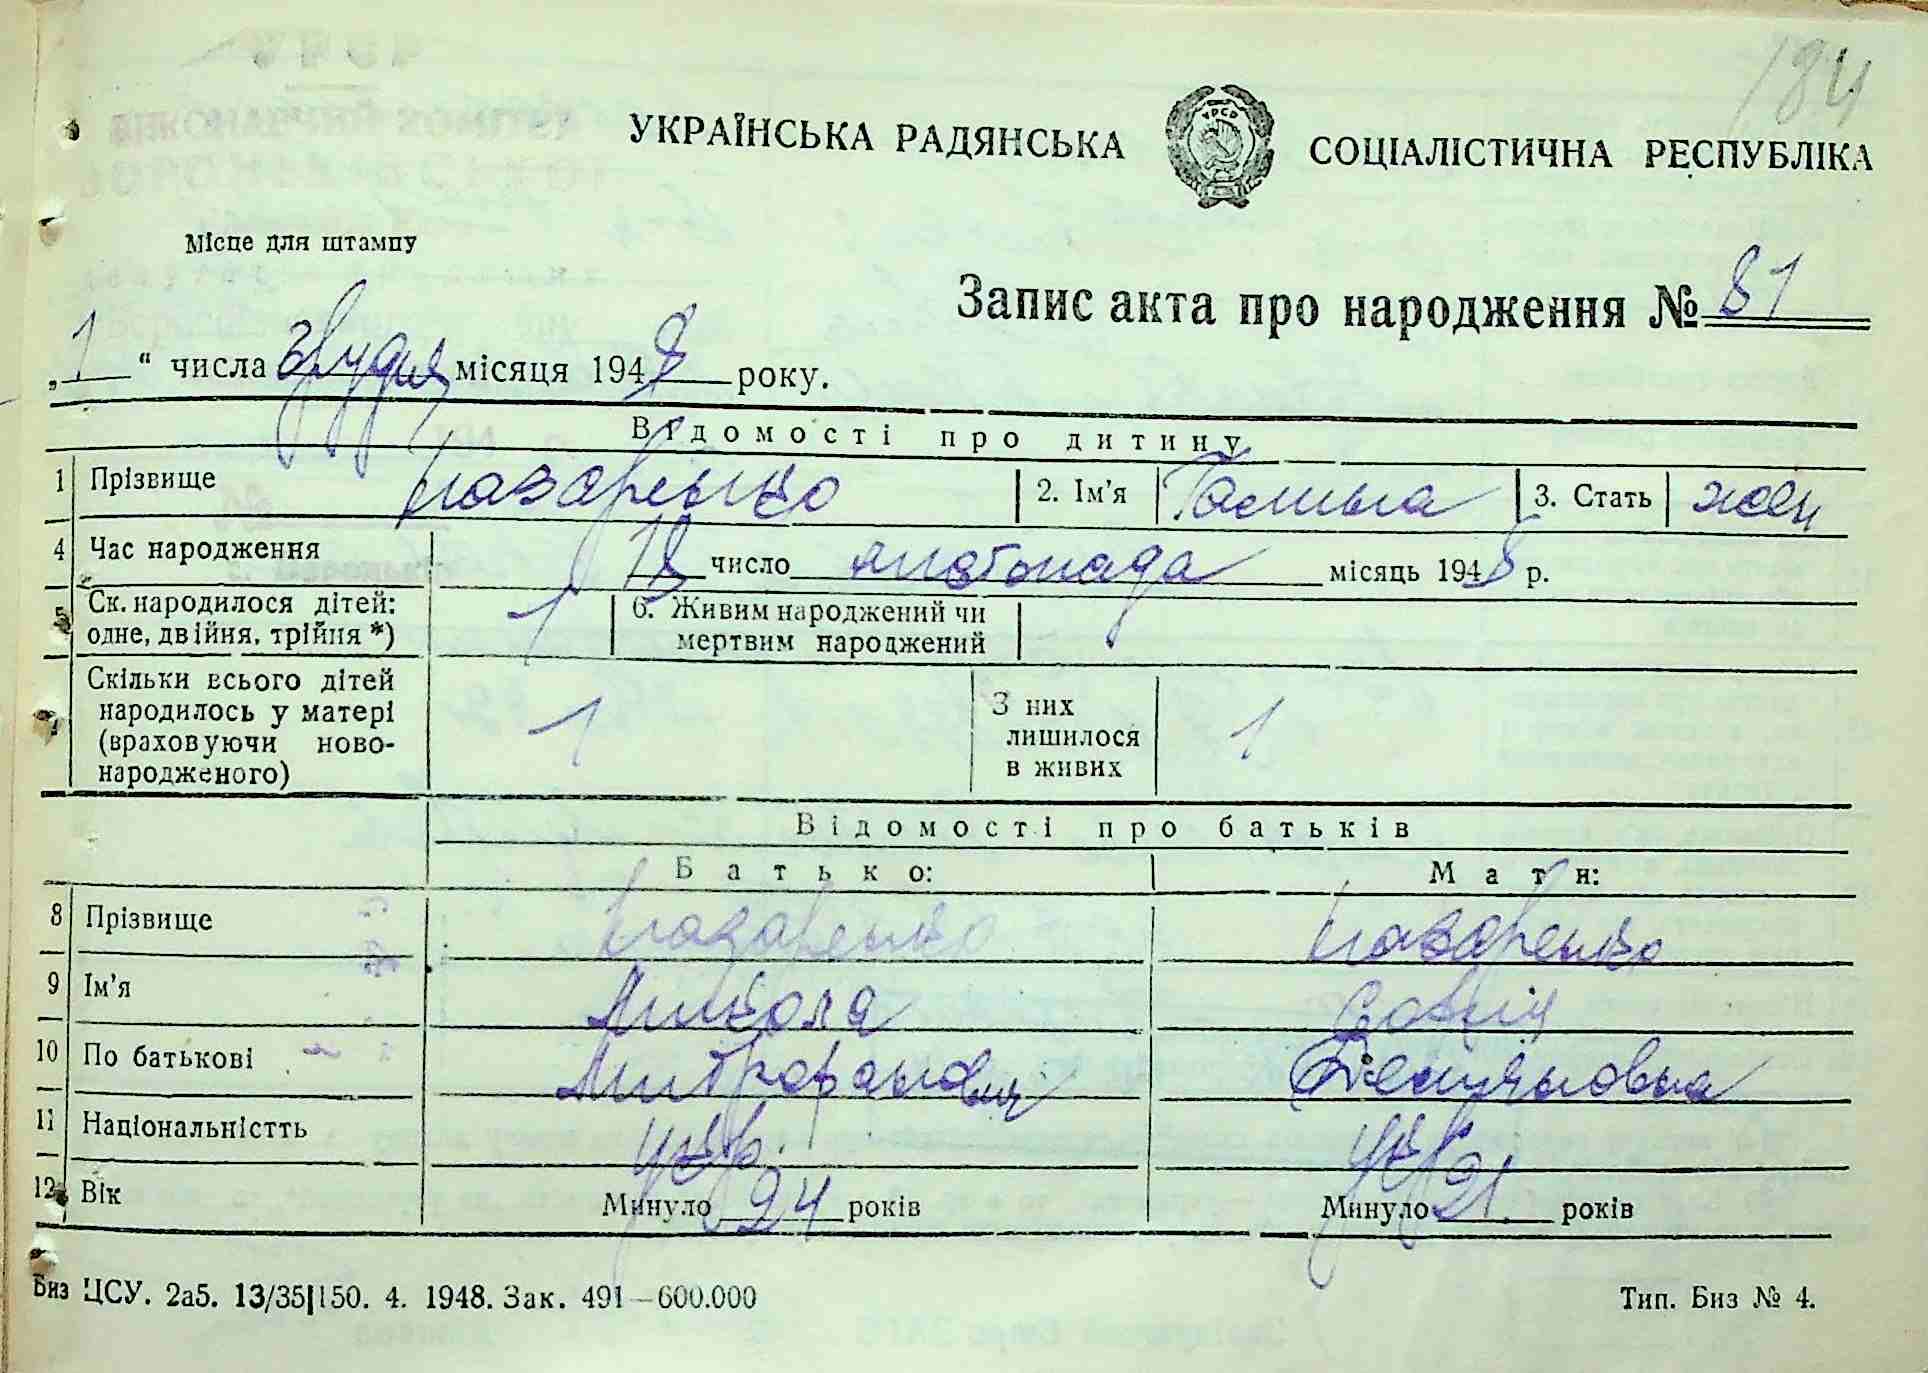 184
УКРАЇНСЬКА РАДЯНСЬКА СОЦІАЛІСТИЧНА РЕСПУБЛІКА
УРСР
Місце для штампу
Запис акта про народження № 81
„1“ числа грудня місяця 1948 року.
Відомості про дитину
1 Прізвище Назаренко 2. Ім'я Галина 3. Стать жен
4 Час народження 18 число листопада місяць 1948 р.
5 Ск. народилося дітей: одне, двійня, трійня *) 1 6. Живим народжений чи мертвим народжений
7 Скільки всього дітей народилось у матері (враховуючи ново-народженого) 1 З них лишилося в живих 1
Відомості про батьків
Батько: Мати:
8 Прізвище Назаренко Назаренко
9 Ім'я Микола Софія
10 По батькові Митрофанович Демяновна
11 Національністть укр. укр
12 Вік Минуло 24 років Минуло 21 років
Биз ЦСУ. 2а5. 13/35|150. 4. 1948. Зак. 491—600.000 Тип. Биз № 4.